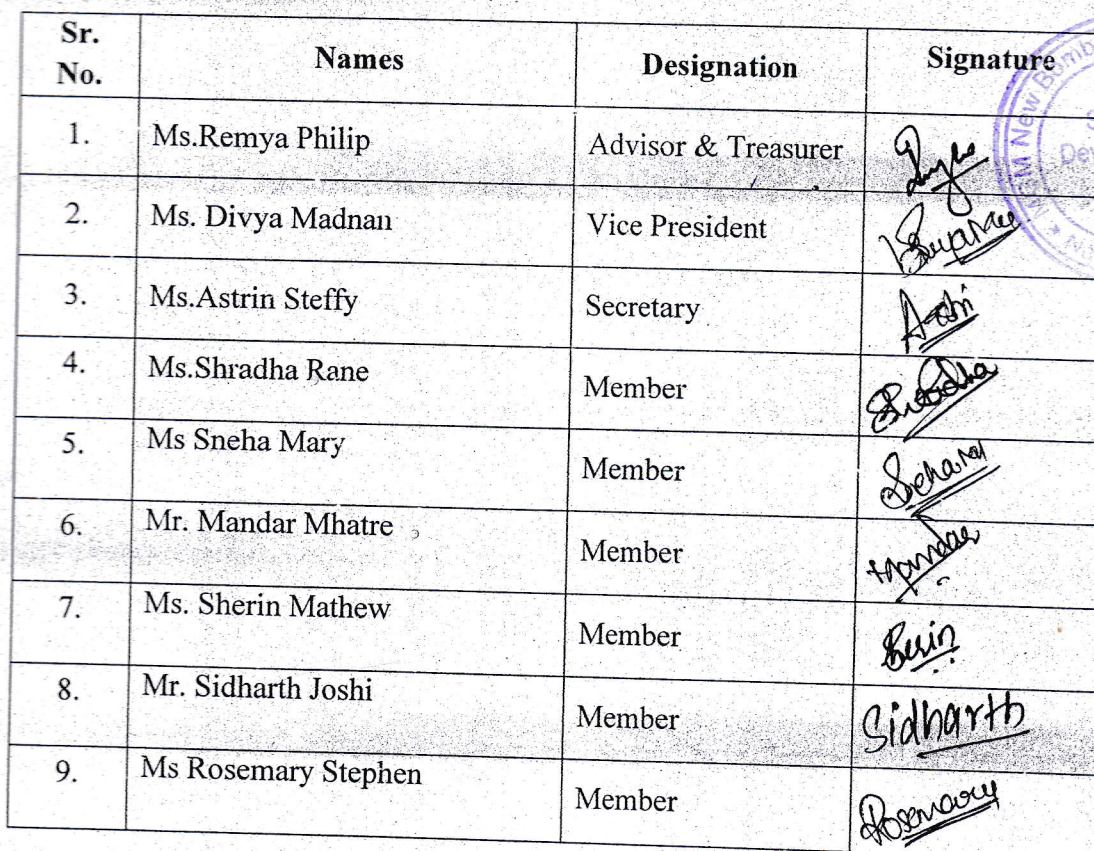 Sr. No. Names Designation Signature
1. Ms.Remya Philip Advisor & Treasurer
2. Ms. Divya Madnan Vice President
3. Ms.Astrin Steffy Secretary
4. Ms.Shradha Rane Member Shradha
5. Ms Sneha Mary Member
6. Mr. Mandar Mhatre Member Mandar
7. Ms. Sherin Mathew Member
8. Mr. Sidharth Joshi Member Sidharth
9. Ms Rosemary Stephen Member Rosemary
New Bomb